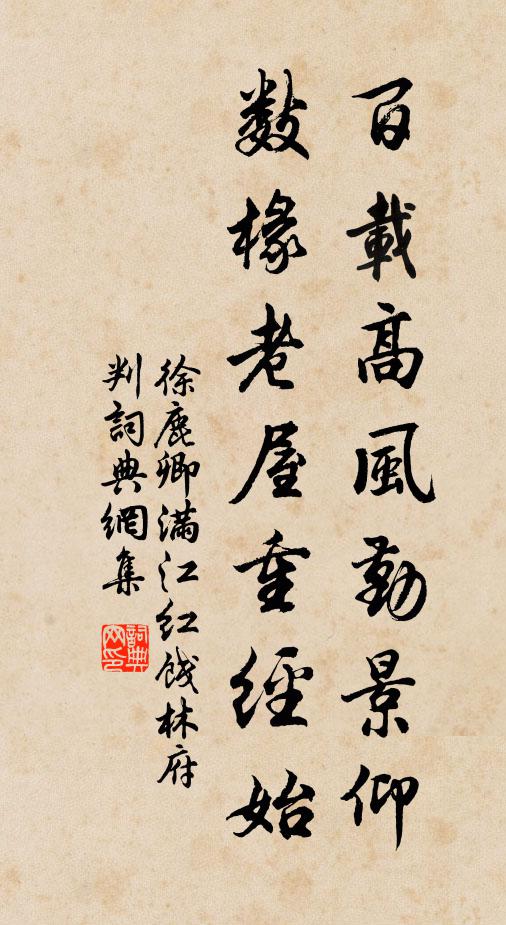 百載高風勤景仰
數椽老屋重經始
徐鹿卿滿江红餞林府
判詞典網集
詞典網印